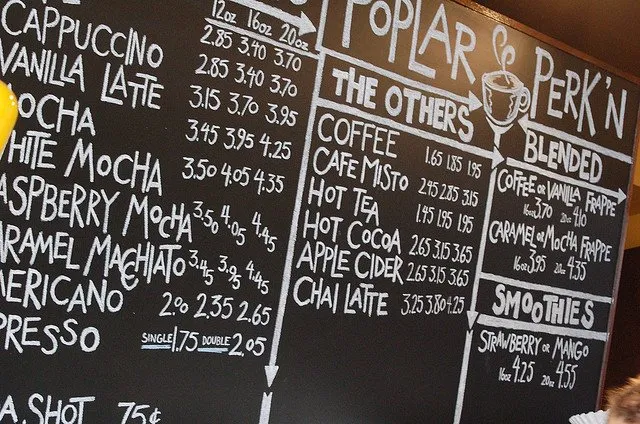 12oz 16oz 20oz
2.85 3.40 3.70
CAPPUCCINO 2.85 3.40 3.70
VANILLA LATTE 3.15 3.70 3.95
OCHA 3.45 3.95 4.25
HITE MOCHA 3.50 4.05 4.35
ASPBERRY MOCHA 3.50 4.05 4.45
ARAMEL MACCHIATO 3.45 3.95 4.45
ERICANO 2.00 2.35 2.65
PRESSO SINGLE 1.75 DOUBLE 2.05
A SHOT 75¢
POPLAR PERK'N
THE OTHERS
COFFEE 1.65 1.85 1.95
CAFE MISTO 2.45 2.85 3.15
HOT TEA 1.45 1.95 1.95
HOT COCOA 2.65 3.15 3.65
APPLE CIDER 2.65 3.15 3.65
CHAI LATTE 3.25 3.80 4.25
BLENDED
COFFEE OR VANILLA FRAPPE
16oz 3.70 20oz 4.10
CARAMEL OR MOCHA FRAPPE
16oz 3.95 20oz 4.35
SMOOTHIES
STRAWBERRY OR MANGO
16oz 4.25 20oz 4.55